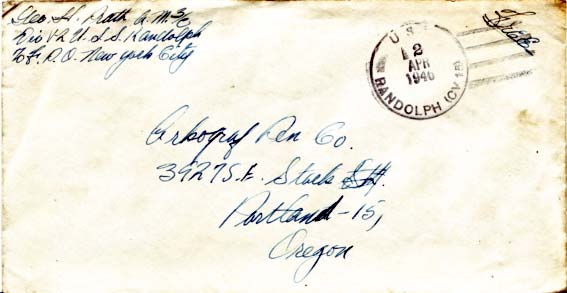 Geo. H. Prath A.M.3/c
Div V-2 U.S.S. Randolph
℅ F.P.O. New York City
Free
U.S.S.
2
APR
1946
RANDOLPH (CV 15)
Arkograf Pen Co.
3927 S.E. Stark St.
Portland-15,
Oregon